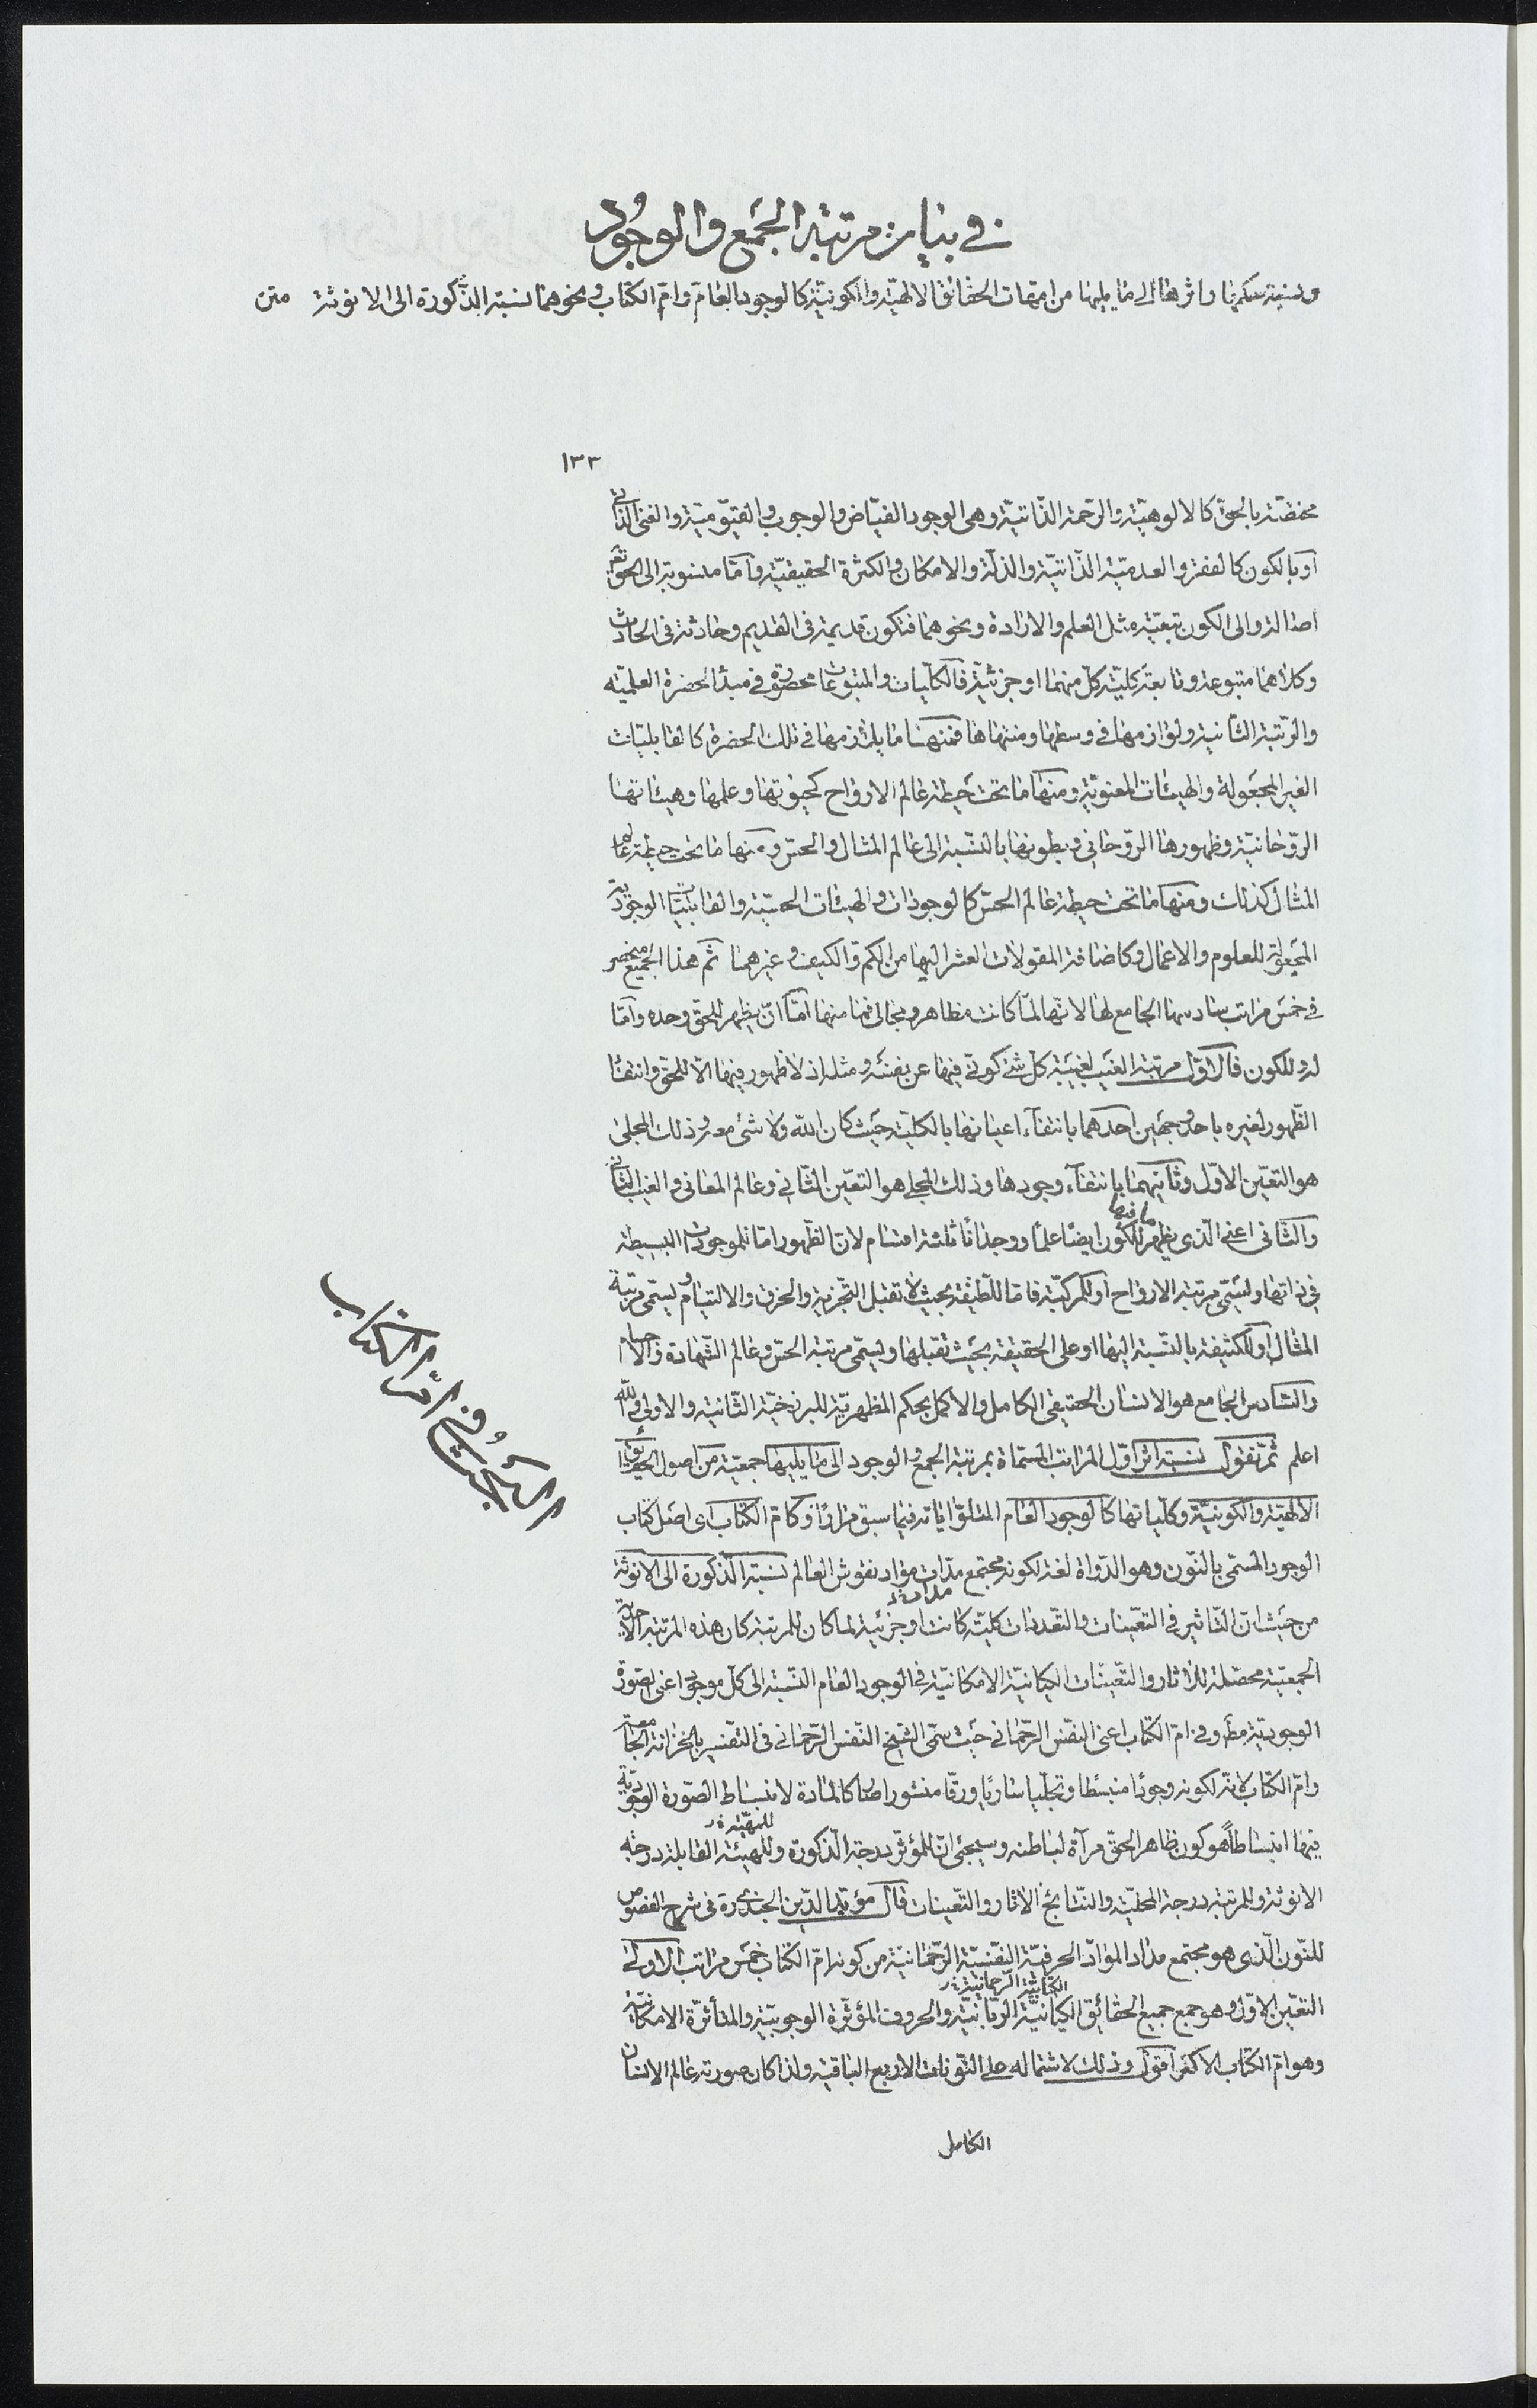 في بيان مرتبة الجمع والوجود
ونسبة حكمها واثرها الى ما يليها من امهات الحقائق الالهية والكونية كالوجود العام وام الكتاب ونحوهما نسبة الذكورة الى الانوثة متن
١٣٣
مختصة بالحق كالالوهية والرحمة الذاتية وهى الوجود الفياض والوجوب والقيومية والغنى الذاتى
او بالكون كالفقر والعدمية الذاتية والذلة والامكان والكثرة الحقيقية واما منسوبة الى الحق تعم
اصالة والى الكون تبعية مثل العلم والارادة ونحوهما فتكون قديمة فى القديم وحادثة فى الحادث
وكلاهما متبوعة وتابعة كلية كل منهما او جزئية فالكليات والمتبوعات محصورة فى مبدأ الحضرة العلمية
والرتبة الثانية ولوازمها فى وسطها ومنتهاها فمنها ما يلازمها فى تلك الحضرة كالقابليات
الغير المجعولة والهيئات المعنوية ومنها ما تحت حيطة عالم الارواح كحيوتها وعلمها وهيئاتها
الروحانية وظهورها الروحانى وبطونها بالنسبة الى عالم المثال والحس ومنها ما تحت حيطة عالم
المثال كذلك ومنها ما تحت حيطة عالم الحس كالوجودات والهيئات الحسية والقابليات الوجودية
المجعولة للعلوم والاعمال وكاضافة المقولات العشر اليها من الكم والكيف وغيرهما ثم هذا الجميع منحصر
فى خمس مراتب سادسها الجامع لها لانها لما كانت مظاهر ومجالى فما منها اما ان يظهر للحق وحده واما
له وللكون فالاول مرتبة الغيب لغيبة كل شئ كونى فيها عن نفسه ومثله اذ لا ظهور فيها الا للحق وانتفاء
الظهور لغيره باحد وجهين احدهما بانتفاء اعيانها بالكلية حيث كان الله ولا شئ معه وذلك المجلى
هو التعين الاول وثانيهما بانتفاء وجودها وذلك المجلى هو التعين الثانى وعالم المعانى والغيب الثانى
والثانى اعنى الذى يظهر ما فيها للكون ايضا علما ووجدانا ثلثة اقسام لان الظهور اما للموجودات البسيطة
فى ذاتها ويسمى مرتبة الارواح او المركبة فاما اللطيفة بحيث لا تقبل التجزية والخرق والالتيام ويسمى مرتبة
المثال او الكثيفة بالنسبة اليها او على الحقيقة بحيث تقبلها ويسمى مرتبة الحس وعالم الشهادة والاجسام
والسادس الجامع هو الانسان الحقيقى الكامل والاكمل بحكم المظهرية للبرزخية الثانية والاولى والله
اعلم ثم نقول نسبة اثر اول المراتب المسماة بمرتبة الجمع والوجود الى ما يليها جمعية من اصول الحقائق
الالهية والكونية وكلياتها كالوجود العام المتلو اياته فيما سبق مرارا وكام الكتاب اى اصل كتاب
الوجود المسمى بالنون وهو الدواة لغة لكونه مجتمع مدات مواد نقوش العالم نسبة الذكورة الى الانوثة
من حيث ان التاثير فى التعينات والتعددات كلية كانت او جزئية لما كان للمرتبة كان هذه المرتبة
الجمعية محصلة للاثار والتعينات الكيانية الامكانية فى الوجود العام النسبة الى كل موجود اعنى الصورة
الوجودية وفى ام الكتاب اعنى النفس الرحمانى حيث سمى الشيخ النفس الرحمانى فى التفسير بالخزانة الجامعة
وام الكتاب لانه لكونه وجودا منبسطا وتجليا ساريا ورقا منشورا صار كالمادة لانبساط الصورة الوجودية
فيها انبساطا هو كون ظاهر الحق مرآة لباطنه وسيجئ ان للمؤثر درجة الذكورة وللهيئة القابلة درجة
الانوثة وللمرتبة درجة المحلية والنتائج الاثار والتعينات قال مؤيد الدين الجندى ره فى شرح الفصوص
للنون الذى هو مجتمع مداد المواد الحرفية النفسية الرحمانية من كونه ام الكتاب خمس مراتب الاولى
التعين الاول وهو جمع جميع الحقائق الكيانية الربانية والحروف المؤثرة الوجوبية والمتأثرة الامكانية
وهو ام الكتاب الاكبر اقول وذلك لاشتماله على النونات الاربع الباقية ولذا كان صورته عالم الانسان
الكامل
البحث فى ام الكتاب